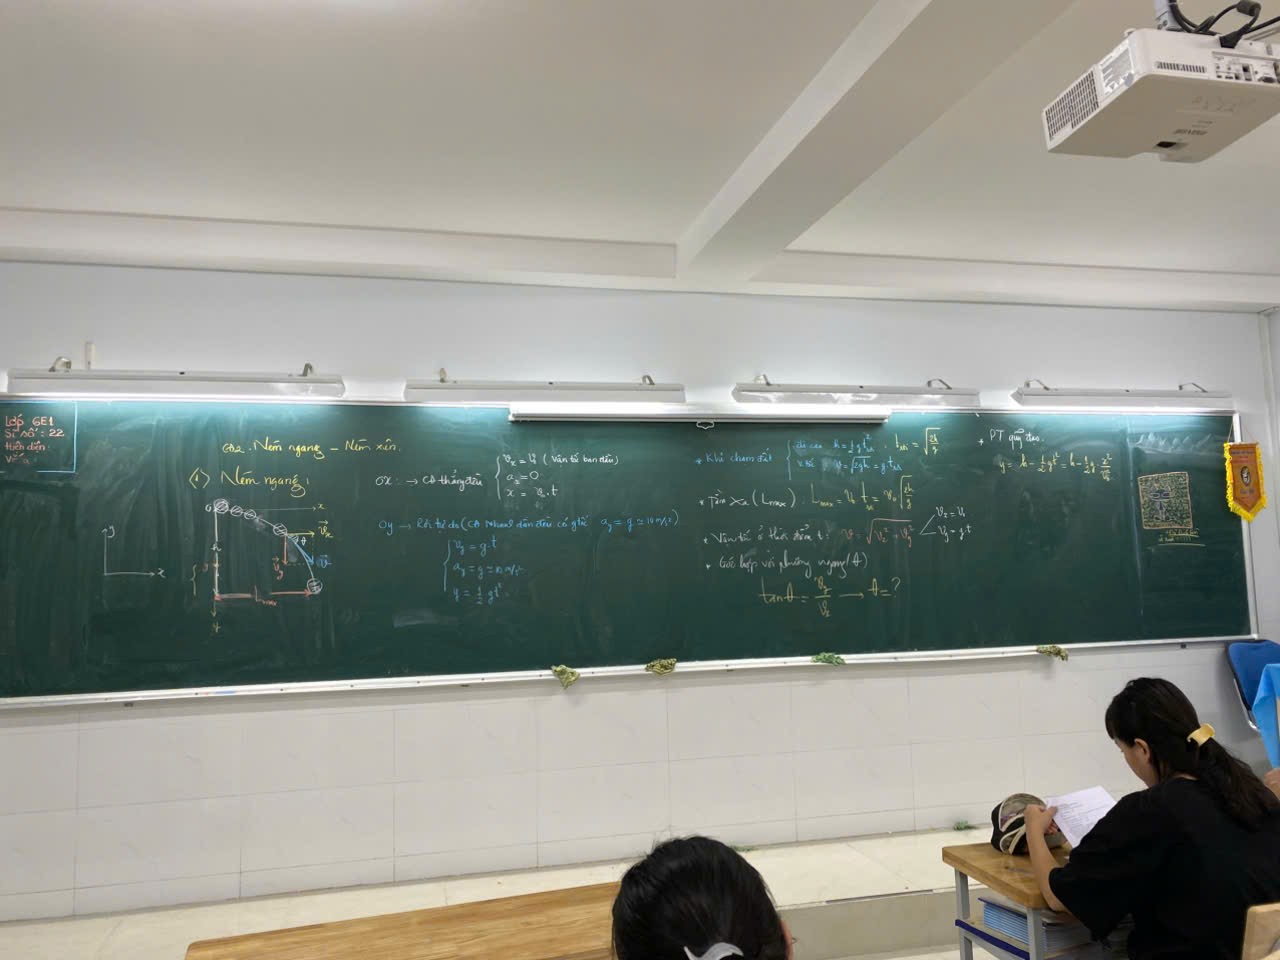 Lớp 6E1
Sĩ số: 22
Hiện diện:
Vắng:
Ném ngang - Ném xiên.
① Ném ngang:
O
x
y
v⃗x
θ
v⃗y
v⃗
Lmax
y
y
x
Ox: → CĐ thẳng đều
vx = v0 (Vận tốc ban đầu)
ax = 0
x = v0.t
Oy → Rơi tự do (CĐ Nhanh dần đều có gia tốc ay = g ≃ 10 m/s²)
vy = g.t
ay = g ≃ 10 m/s²
y = 1/2 gt²
* Khi chạm đất
h = 1/2 g t²cđ
tcđ = √(2h/g)
v = √2gh = g.tcđ
* Tầm xa (Lmax): Lmax = v0 tcđ = v0 √(2h/g)
* Vận tốc ở thời điểm t: v = √(vx² + vy²)
vx = v0
vy = g.t
* Góc hợp với phương ngang (θ)
tanθ = vy/vx → θ = ?
* PT quỹ đạo.
y = h - 1/2 gt² = h - 1/2 g x²/v0²